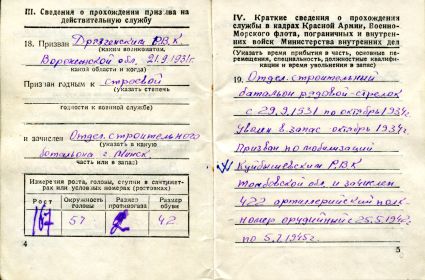 III. Сведения о прохождении призыва на
действительную службу
18. Призван Дрязгенским Р.В.К
(каким военкоматом,
Воронежской обл. 21.9.1931г.
какой области и когда)
Призван годным к строевой
(указать степень
годности к военной службе)
и зачислен Отдел. строительного
(указать в какую
батальона г. Минск
часть или в запас)
Измерения роста, головы, ступни в сантимет-
рах или условных номерах (ростовках)
Рост
Окружность головы
Размер противогаза
Размер обуви
167 57 2 42
4
IV. Краткие сведения о прохождении
службы в кадрах Красной Армии, Военно-
Морского флота, пограничных и внутрен-
них войск Министерства внутренних дел
(Указать время прибытия в часть, основные пере-
перемещения, специальность, должностные квалифи-
кации и время увольнения в запас)
19. Отдел. строительный
батальон рядовой-стрелок
с 29.9.1931 по октябрь 1934г.
Уволен в запас октябрь 1934г.
Призван по мобилизации
Куйбышевским Р.В.К
Тамбовской обл и зачислен
422 артилерийский полк-
номер орудийный с 25.5.1942г.
по 5.7.1945г.
5